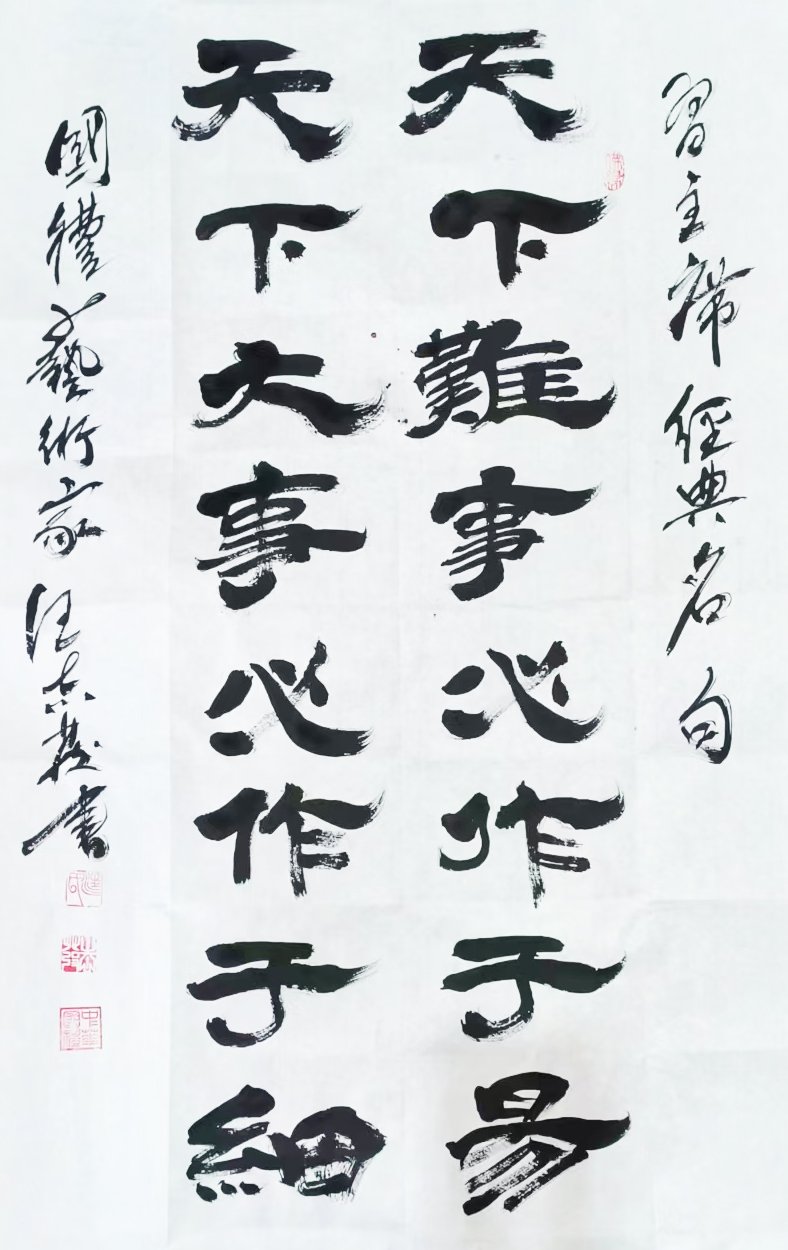 習主席經典名句
天下難事必作于易
天下大事必作于細
國禮藝術家汪志茂書